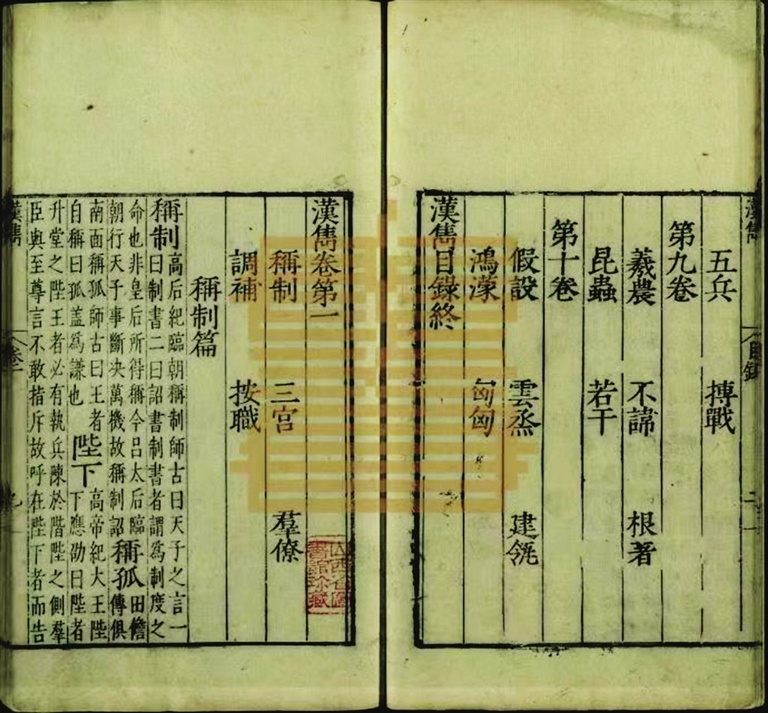 漢雋 目錄
五兵 搏戰
第九卷
羲農 不諦 根著
昆蟲 若干
第十卷
假設 雲烝 建瓴
鴻濛 匈匈
漢雋目錄終
漢雋卷第一
稱制 三宮 羣僚
調補 按職
稱制篇
稱制 高后紀臨朝稱制師古曰天子之言一
曰制書二曰詔書制書者謂為制度之
命也非皇后所得稱今呂太后臨
朝行天子事斷決萬機故稱制詔 稱孤 田儋
傳俱
南面稱孤師古曰王者
自稱曰孤蓋為謙也 陛下 高帝紀大王陛
下應劭曰陛者
升堂之陛王者必有執兵陳於階陛之側羣
臣與至尊言不敢指斥故呼在陛下者而告
漢雋 卷一
山西省圖
書館珍藏